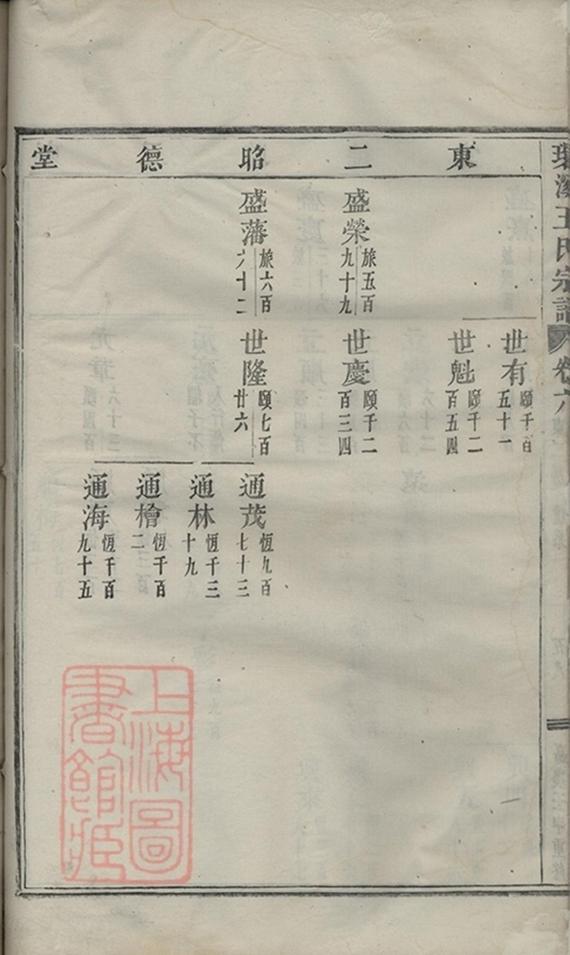 東二昭德堂
王氏宗譜
卷六
盛榮 旅五百九十九
盛藩 旅六百六十二
世有 頤千百五十一
世魁 頤千二百五四
世慶 頤千二百三四
世隆 頤七百廿六
通茂 恆九百七十三
通林 恆千三十九
通檜 恆千百二
通海 恆千百九十五
上海圖書館臧